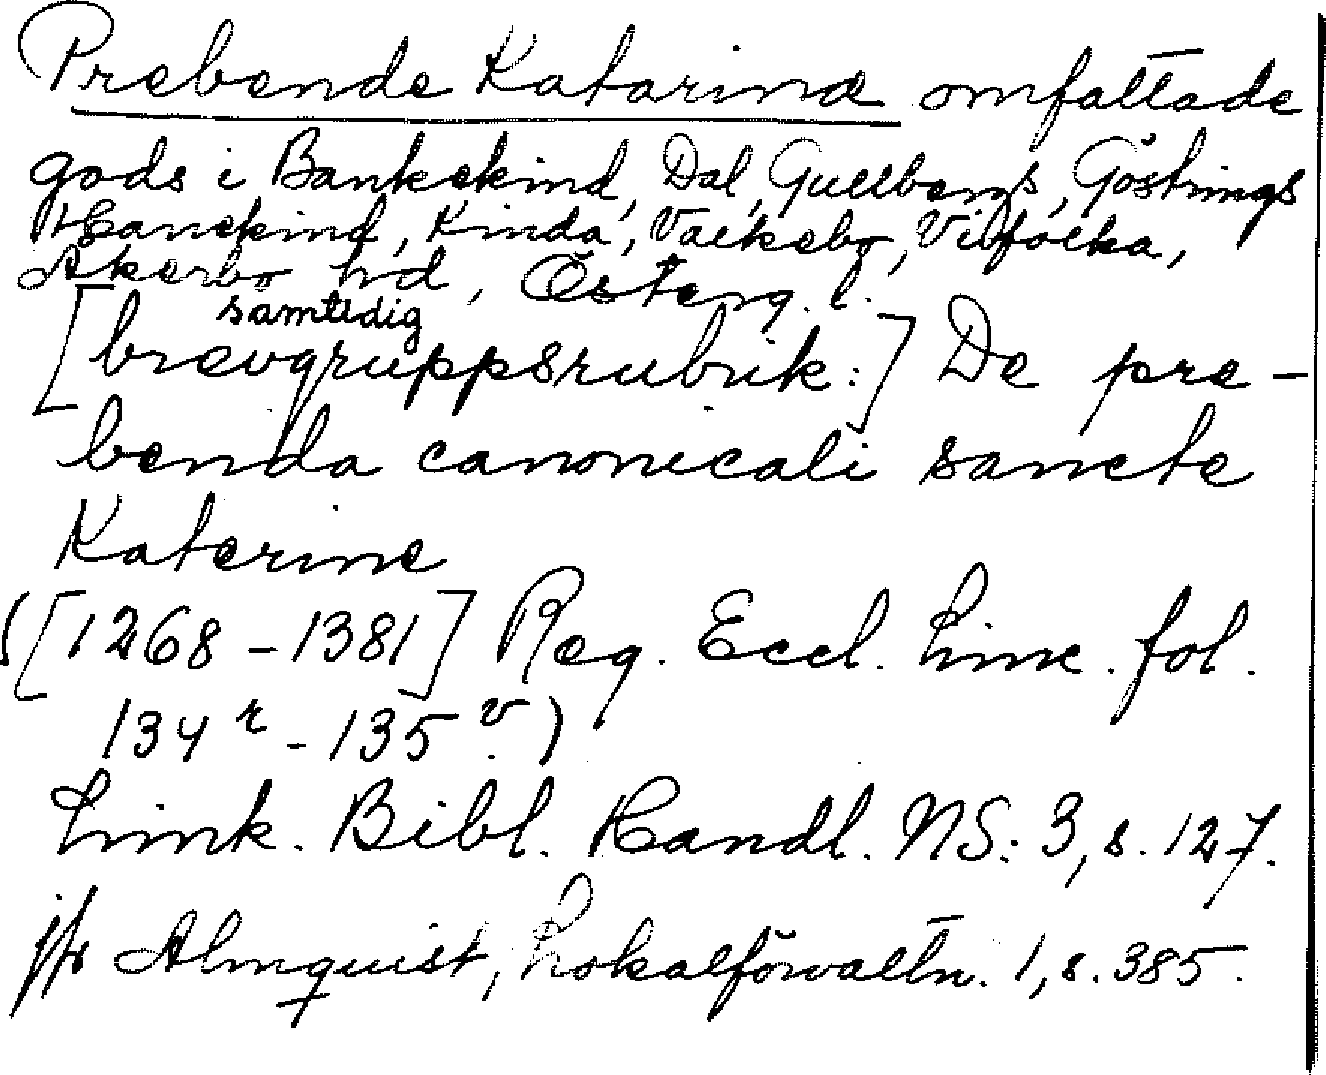 Prebende Katarinæ omfattade
gods i Bankekind, Dal, Gullbergs, Göstrings
Hanekind, Kinda, Valkebo, Vifolka,
Åkerbo hd, Österg. l.
samtidig
[brevgruppsrubrik:] De pre-
benda canonicali sancte
Katerine
([1268-1381] Reg. Eccl. Linc. fol.
134 r - 135 v.)
Link. Bibl. Handl. NS: 3, s. 127.
jfr Almquist, Lokalförvaltn. 1, s. 385.